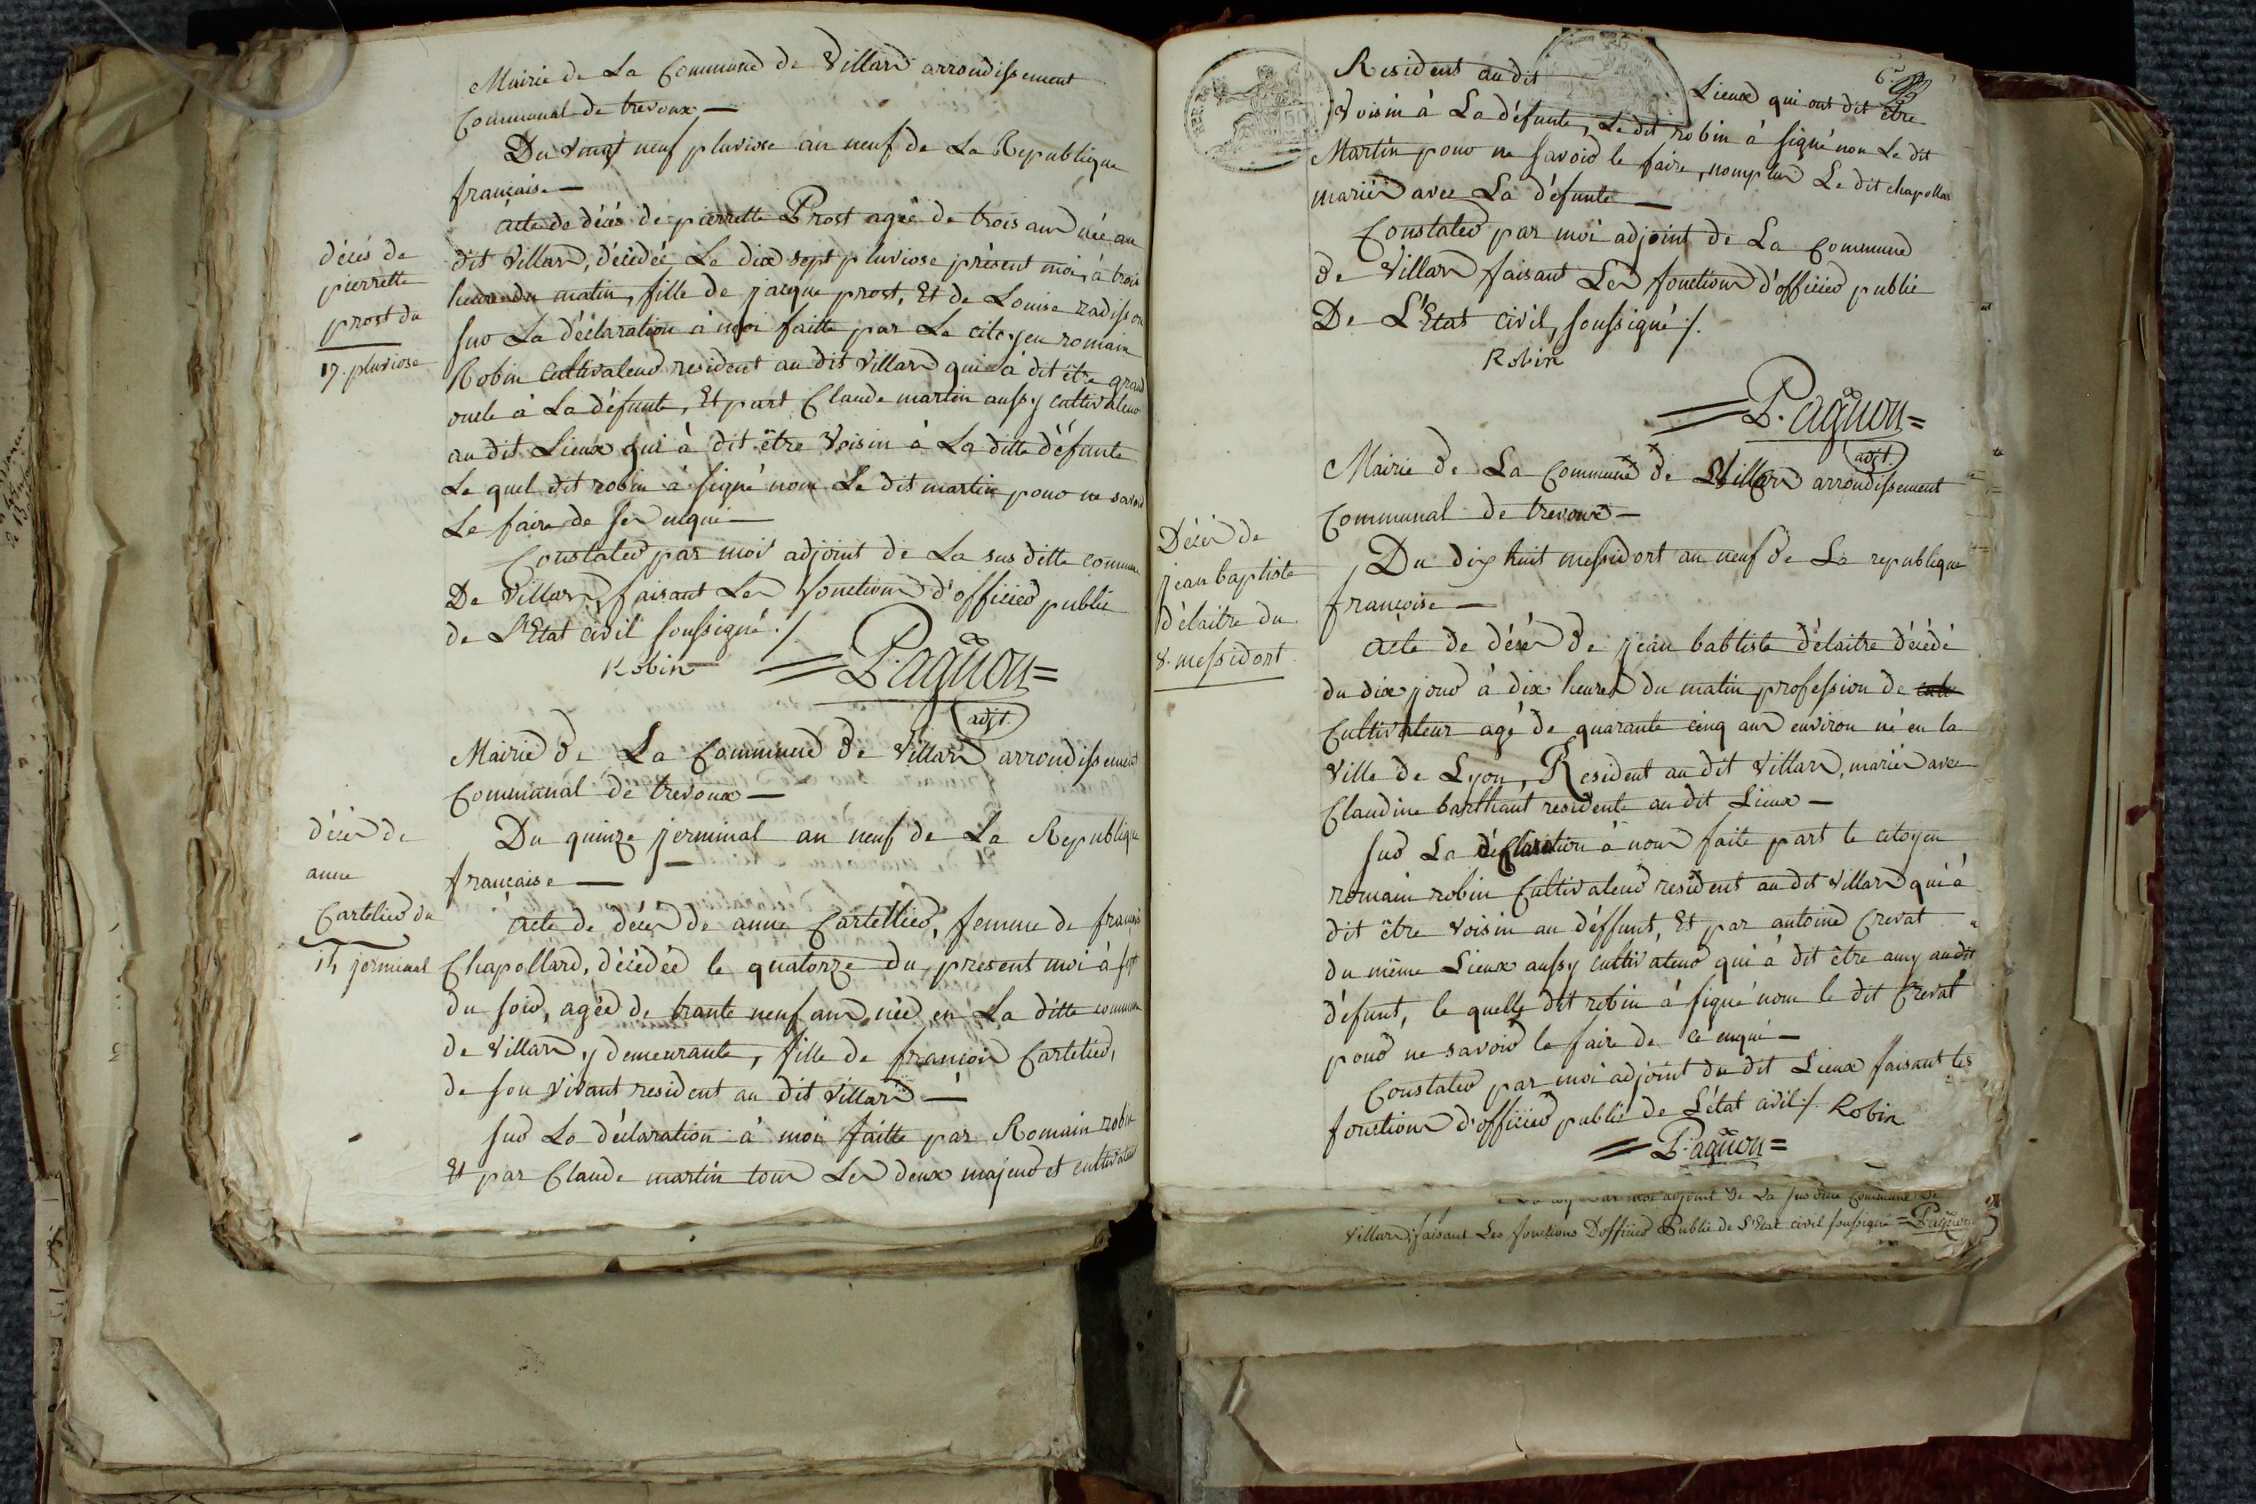 Mairie de La Commune de Villars arrondissement
Communal de trevoux —
Du vingt neuf pluviose an neuf de La Republique
française —
décés de
pierrette
prost du
17. pluviose
Acte de décés de pierrette Prost agée de trois ans née au
dit Villars, décédée Le dix sept pluviose présent mois, à trois
heures du matin, fille de jacque prost, Et de Louise radisson
sur La déclaration à moi faitte par Le citoyen romain
Robin Cultivateur resident au dit Villars qui à dit être grand
oncle à La défunte, Et part Claude martin aussy cultivateur
au dit Lieux qui à dit être Voisin à La ditte défunte
Le quel dit robin à signé non Le dit martin pour ne savoir
Le faire de ser enqui —
Constater par moi adjoint de La sus ditte commune
De Villars, faisant Les fonctions d'officier public
de L'Etat civil soussigné ./
Robin
= P. agnon =
adjt.
Mairie de La Commune de Villars arrondissement
Communal de trevoux —
Du quinze jerminal an neuf de La Republique
française —
décés de
anne
Cartelier du
14 jerminal
Acte de décés de anne Cartellier, femme de françois
Chapollard, décédée le quatorze du present moi à sept
du soir, agée de trante neuf ans, née en La ditte commune
de Villars y demeurante, fille de françois Cartelier,
de son Vivant resident au dit Villars —
sur La déclaration à moi faitte par Romain robin
Et par Claude martin tous Les deux majeur et cultivateur
6e
Resident au dit Lieux qui ont dit être
Voisin à La défunte, Le dit robin à signé non Le dit
Martin pour ne savoir le faire, Le dit chapollar
mariés avec La défunte —
Constater par moi adjoint de La Commune
de Villars faisant Les fonctions d'officier public
De L'Etat civil, soussigné ./.
Robin
= P. agnon =
adjt.
Mairie de La Commune de Villars arrondissement
Communal de trevoux —
Du dix huit messidort an neuf de La republique
françoise —
Décés de
jean baptiste
délaitre du
8. messidort
Acte de décés de jean babtiste délaitre décédé
du dix jour à dix heures du matin profession de
Cultivateur agé de quarante cinq ans environ né en la
Ville de Lyon, Resident au dit Villars, mariés avec
Claudine barthant residente au dit Lieux —
sur La déclaration à nous faite part le citoyen
romain robin Cultivateur resident au dit Villars qui à
dit être Voisin au déffunt, Et par antoine Crevat
du même Lieux aussy cultivateur qui à dit être amy au dit
défunt, le quelle dit robin à signé non le dit Crevat
pour ne savoir le faire de ce enqui —
Constater par moi adjoint du dit Lieux faisant les
fonctions d'officier public de L'état civil ./. Robin
= P. agnon =
par moi adjoint de La sus dite Commune de
Villars, faisant Les fonctions D'officier Public de L'Etat civil soussigné = P. agnon